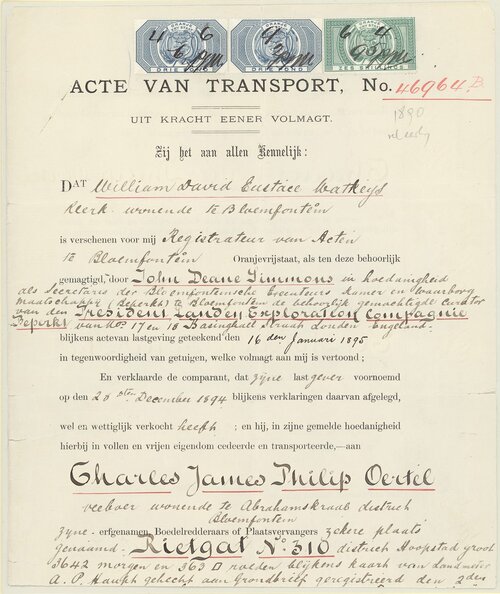 4 6 4
6 9 6
DRIE POND DRIE POND ZES SHILLINGS
ACTE VAN TRANSPORT, No. 46964 B.
UIT KRACHT EENER VOLMAGT.
1890
Zij het aan allen Kennelijk:
DAT William David Eustace Watkeys
Klerk wonende te Bloemfontein
is verschenen voor mij Registrateur van Acten
te Bloemfontein Oranjevrijstaat, als ten deze behoorlijk
gemagtigd, door John Deane Simmons in hoedanigheid
als Secretaris der Bloemfonteinsche Executeurs Kamer en Waarborg
maatschappij (Beperkt) te Bloemfontein de behoorlijk gemachtigde Curator
van den President Landen Exploration Compagnie
Beperkt van Nos 17 en 18 Basinghall Straat Londen Engeland
blijkens acte van lastgeving geteekend den 16 den Januari 1895
in tegenwoordigheid van getuigen, welke volmagt aan mij is vertoond;
En verklaarde de comparant, dat zyne lastgever voornoemd
op den 20 sten December 1894 blijkens verklaringen daarvan afgelegd,
wel en wettiglijk verkocht heeft ; en hij, in zijne gemelde hoedanigheid
hierbij in vollen en vrijen eigendom cedeerde en transporteerde,—aan
Charles James Philip Oertel
veeboer wonende te Abrahamskraal district
Bloemfontein
zyne erfgenamen, Boedelredderaars of Plaatsvervangers zekere plaats
genaamd Rietgat No. 310 district Hoopstad groot
3642 morgen en 363 □ roeden blijkens kaart van Landmeter
A. P. Hauph gehecht aan Grondbrief geregistreerd den 2den